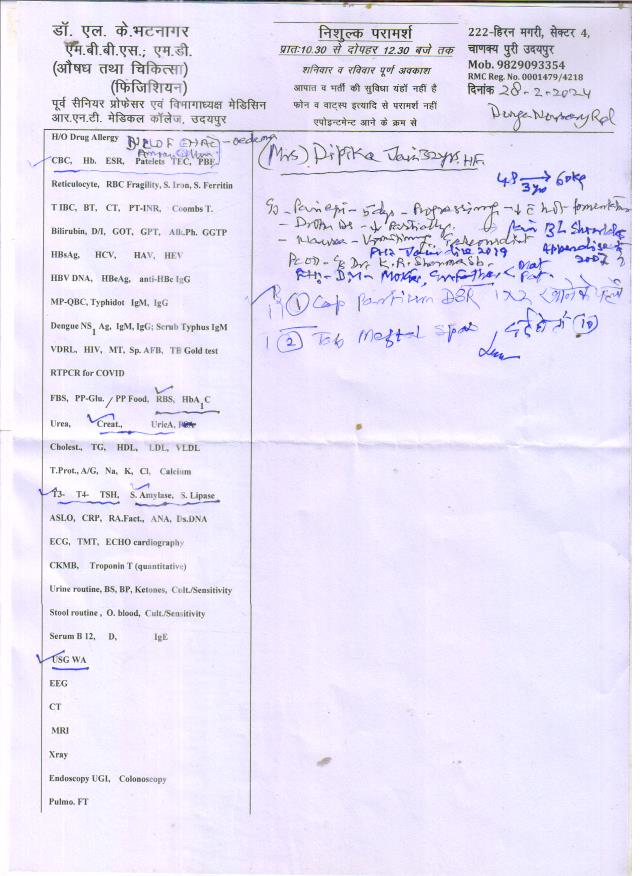 डॉ. एल. के.भटनागर
एम.बी.बी.एस.; एम.डी.
(औषध तथा चिकित्सा)
(फिजिशियन)
पूर्व सीनियर प्रोफेसर एवं विभागाध्यक्ष मेडिसिन
आर.एन.टी. मेडिकल कॉलेज, उदयपुर
निशुल्क परामर्श
प्रातः10.30 से दोपहर 12.30 बजे तक
शनिवार व रविवार पूर्ण अवकाश
आपात व भर्ती की सुविधा यंहॉ नहीं है
फोन व वाट्स इत्यादि से परामर्श नहीं
एपोइन्टमेण्ट आने के क्रम से
222-हिरन मगरी, सेक्टर 4,
चाणक्य पुरी उदयपुर
Mob. 9829093354
RMC Reg. No. 0001479/4218
दिनांक 28-2-2024
H/O Drug Allergy
CBC, Hb. ESR, Patelets TEC, PBF
Reticulocyte, RBC Fragility, S. Iron, S. Ferritin
T IBC, BT, CT, PT-INR, Coombs T.
Bilirubin, D/I, GOT, GPT, Alk.Ph. GGTP
HBsAg, HCV, HAV, HEV
HBV DNA, HBeAg, anti-HBe IgG
MP-QBC, Typhidot IgM, IgG
Dengue NS1 Ag, IgM, IgG; Scrub Typhus IgM
VDRL, HIV, MT, Sp. AFB, TB Gold test
RTPCR for COVID
FBS, PP-Glu. / PP Food, RBS, HbA1C
Urea, Creat., UricA,
Cholest., TG, HDL, LDL, VLDL
T.Prot., A/G, Na, K, Cl, Calcium
T3- T4- TSH, S. Amylase, S. Lipase
ASLO, CRP, RA.Fact., ANA, Ds.DNA
ECG, TMT, ECHO cardiography
CKMB, Troponin T (quantitative)
Urine routine, BS, BP, Ketones, Cult./Sensitivity
Stool routine , O. blood, Cult./Sensitivity
Serum B 12, D, IgE
USG WA
EEG
CT
MRI
Xray
Endoscopy UGI, Colonoscopy
Pulmo. FT
(Mrs) Dipika Jain 32yrs. HF.
48 → 60kg
3 yrs
Pain epi - 5dys - Progressing
Partially
Nausea - Vomiting
2019
2007
PCOD - Dr. K. R. Sharma
DM - Mother, Grandfather
① Cap Pantium DSR 1x2
② Tab Meftal Spas